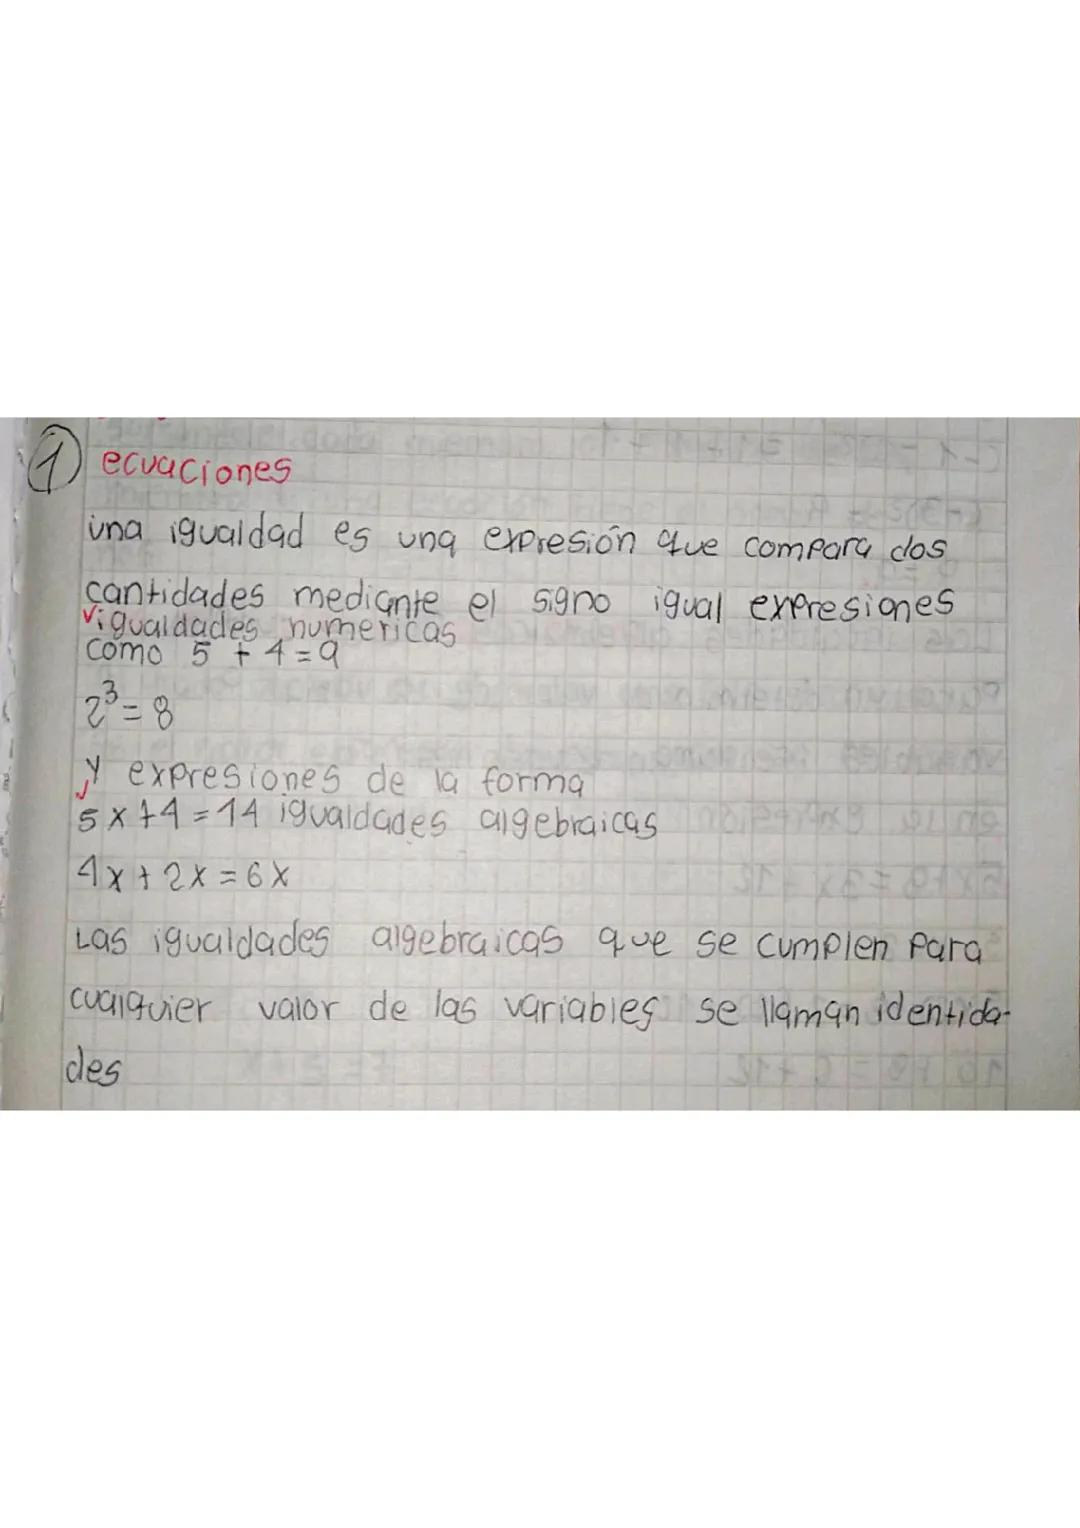 1 ecuaciones
una igualdad es una expresión que compara dos
cantidades mediante el signo igual expresiones
igualdades numericas
como 5 + 4 = 9
2³ = 8
y expresiones de la forma
5x+4=14 igualdades algebraicas
4x + 2x = 6x
Las igualdades algebraicas que se cumplen para
cualquier valor de las variables se llaman identida-
des